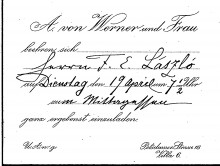 A. von Werner und Frau
beehren sich
Herrn F. E. Laszló
auf Dienstag den 19 April um 7½ Uhr
zum Mittagessen
ganz ergebenst einzuladen
U.A.w.g.
Potsdamer Strasse 113
Villa 6.